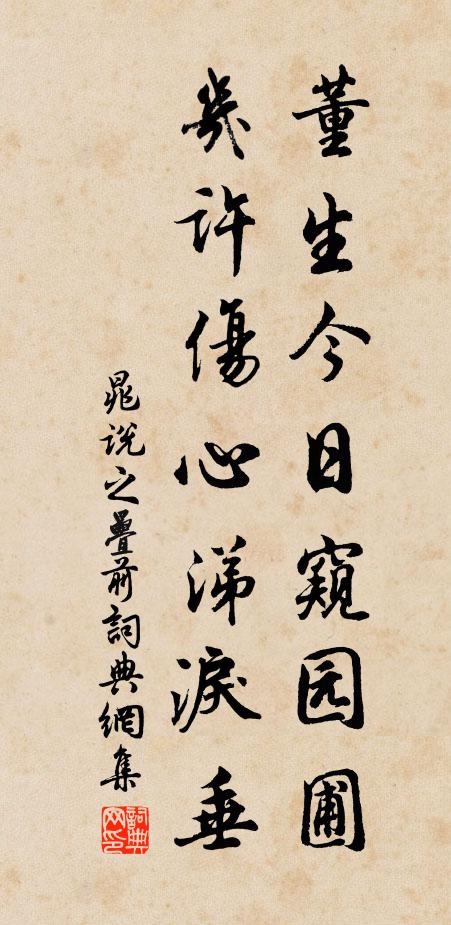 董生今日窺园圃
幾许傷心涕淚垂
晁说之疊前詞典網集
詞典网印